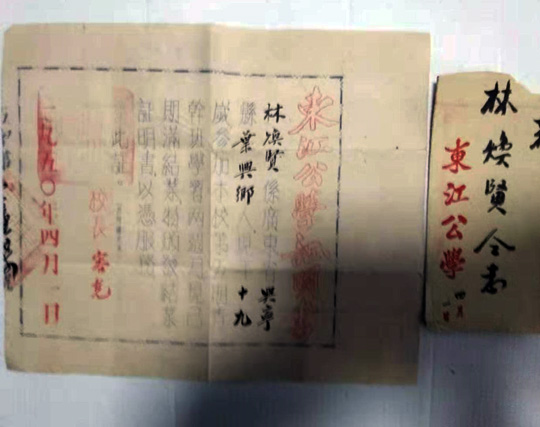 東江公學証明書
林煥賢係廣東省興寧
縣葉興鄉人現年十九
歲參加本校第 期青
幹班學習兩個月現已
期滿結業特頒發結業
証明書以憑服務
此証
校長
一九五〇年四月一日
林煥賢同志
東江公學